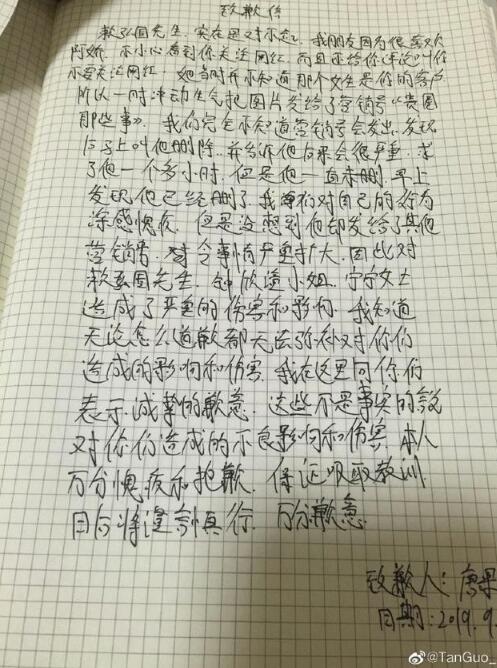 致歉信
赖弘国先生，实在是对不起，我朋友因为很喜欢
阿娇，不小心看到你关注网红，而且还给你评论叫你
不要关注网红，她当时并不知道那个女生是你的客户
所以一时冲动生气把图片发给了营销号《贵圈
那些事》，我们完全不知道营销号会发出，发现
后马上叫他删除，并告诉他后果会很严重，求
了他一个多小时，但是他一直未删，早上
发现他已经删了，我们对自己的行为
深感愧疚，但是没想到他却发给了其他
营销号，令事情严重扩大，因此对
赖弘国先生，钟欣潼小姐，宁宁女士
造成了严重的伤害和影响，我知道
无论怎么道歉都无法弥补对你们
造成的影响和伤害，我在这里向你们
表示诚挚的歉意，这些不是事实的言
对你们造成的不良影响和伤害，本人
万分愧疚和抱歉，保证吸取教训
日后将谨言慎行，万分歉意
致歉人：唐果
日期：2019.9.
@TanGuo_